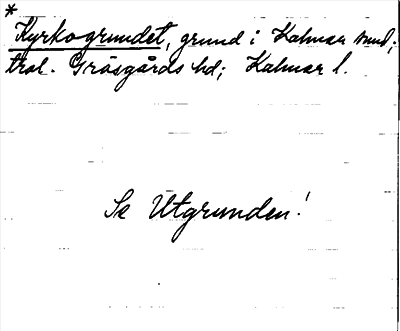 *
Kyrkogrundet, grund i Kalmar sund;
trol. Gräsgårds hd; Kalmar l.
Se Utgrunden!